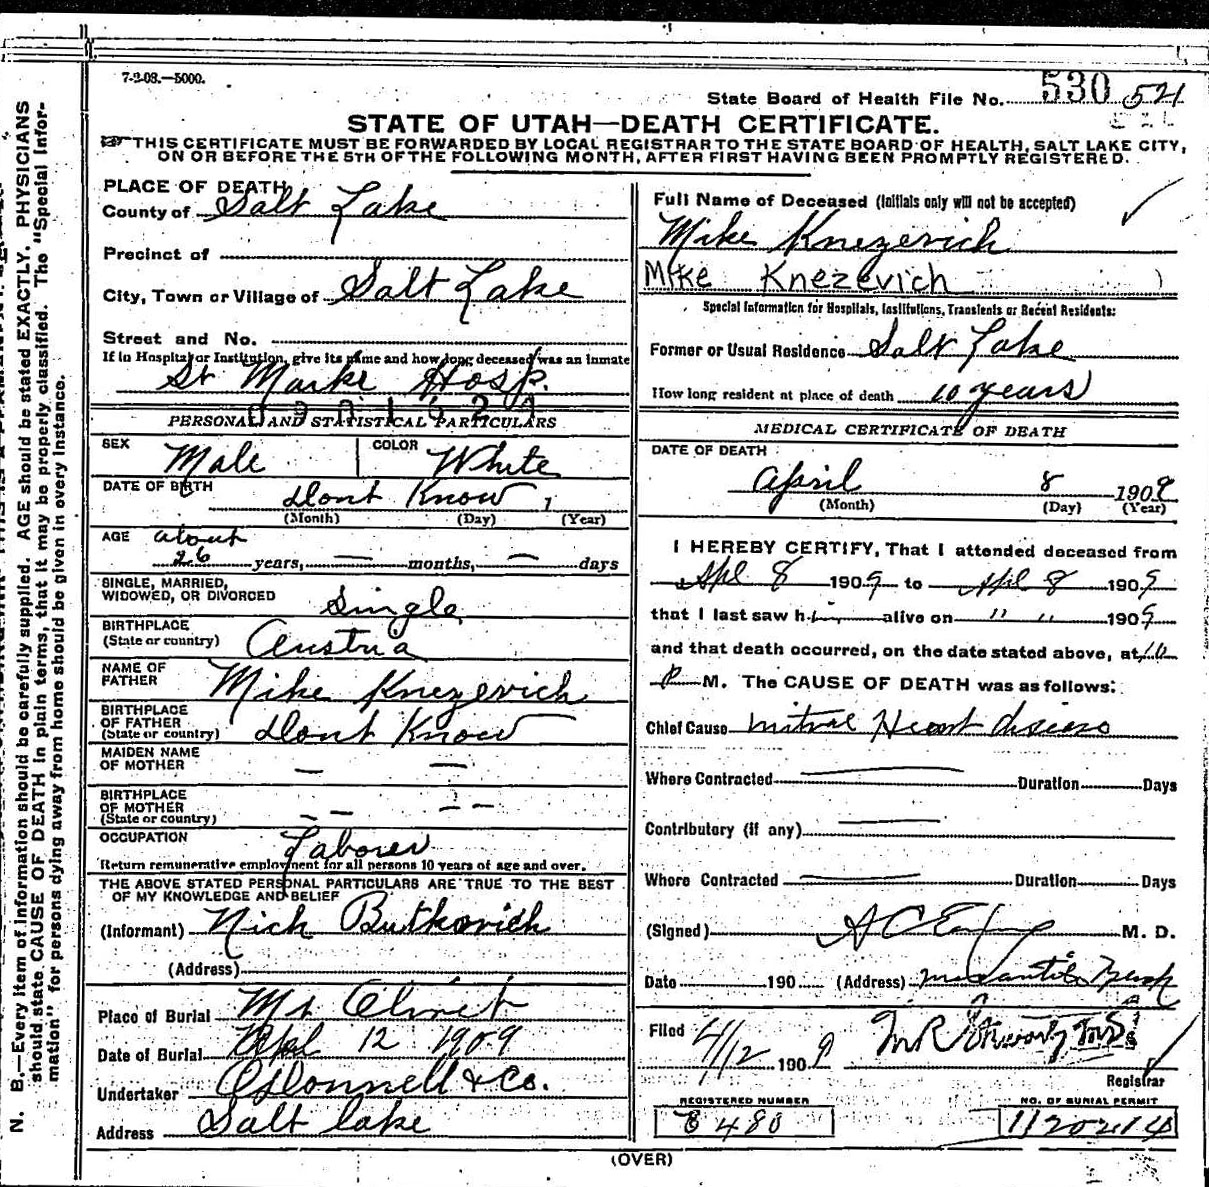 7-2-08.—5000.
State Board of Health File No. 530 521
STATE OF UTAH—DEATH CERTIFICATE.
THIS CERTIFICATE MUST BE FORWARDED BY LOCAL REGISTRAR TO THE STATE BOARD OF HEALTH, SALT LAKE CITY,
ON OR BEFORE THE 5TH OF THE FOLLOWING MONTH, AFTER FIRST HAVING BEEN PROMPTLY REGISTERED.
N. B.—Every item of information should be carefully supplied. AGE should be stated EXACTLY. PHYSICIANS
should state CAUSE OF DEATH in plain terms, that it may be properly classified. The "Special Infor-
mation" for persons dying away from home should be given in every instance.
PLACE OF DEATH
County of Salt Lake
Precinct of
City, Town or Village of Salt Lake
Street and No.
If in Hospital or Institution, give its name and how long deceased was an inmate
St Marks Hosp.
PERSONAL AND STATISTICAL PARTICULARS
SEX Male COLOR White
DATE OF BIRTH Dont Know 1
(Month) (Day) (Year)
AGE about
26 years, — months, — days
SINGLE, MARRIED,
WIDOWED, OR DIVORCED Single
BIRTHPLACE
(State or country) Austria
NAME OF
FATHER Mike Knezevich
BIRTHPLACE
OF FATHER
(State or country) Dont Know
MAIDEN NAME
OF MOTHER — —
BIRTHPLACE
OF MOTHER
(State or country) — —
OCCUPATION Laborer
Return remunerative employment for all persons 10 years of age and over.
THE ABOVE STATED PERSONAL PARTICULARS ARE TRUE TO THE BEST
OF MY KNOWLEDGE AND BELIEF
(Informant) Nick Butkovich
(Address)
Place of Burial Mt Olivet
Date of Burial Apl 12 1909
Undertaker O'Donnell & Co.
Address Salt Lake
Full Name of Deceased (Initials only will not be accepted)
Mike Knezevich
Mike Knezevich
Special Information for Hospitals, Institutions, Transients or Recent Residents:
Former or Usual Residence Salt Lake
How long resident at place of death 10 years
MEDICAL CERTIFICATE OF DEATH
DATE OF DEATH
April 8 1909
(Month) (Day) (Year)
I HEREBY CERTIFY, That I attended deceased from
Apl 8 1909 to Apl 8 1909
that I last saw him alive on " " 1909
and that death occurred, on the date stated above, at 10
P M. The CAUSE OF DEATH was as follows:
Chief Cause Mitral Heart disease
Where Contracted — Duration Days
Contributory (if any) —
Where Contracted — Duration Days
(Signed) M. D.
Date 190 (Address)
Filed 4/12 1909
Registrar
REGISTERED NUMBER
B 480
NO. OF BURIAL PERMIT
(OVER)